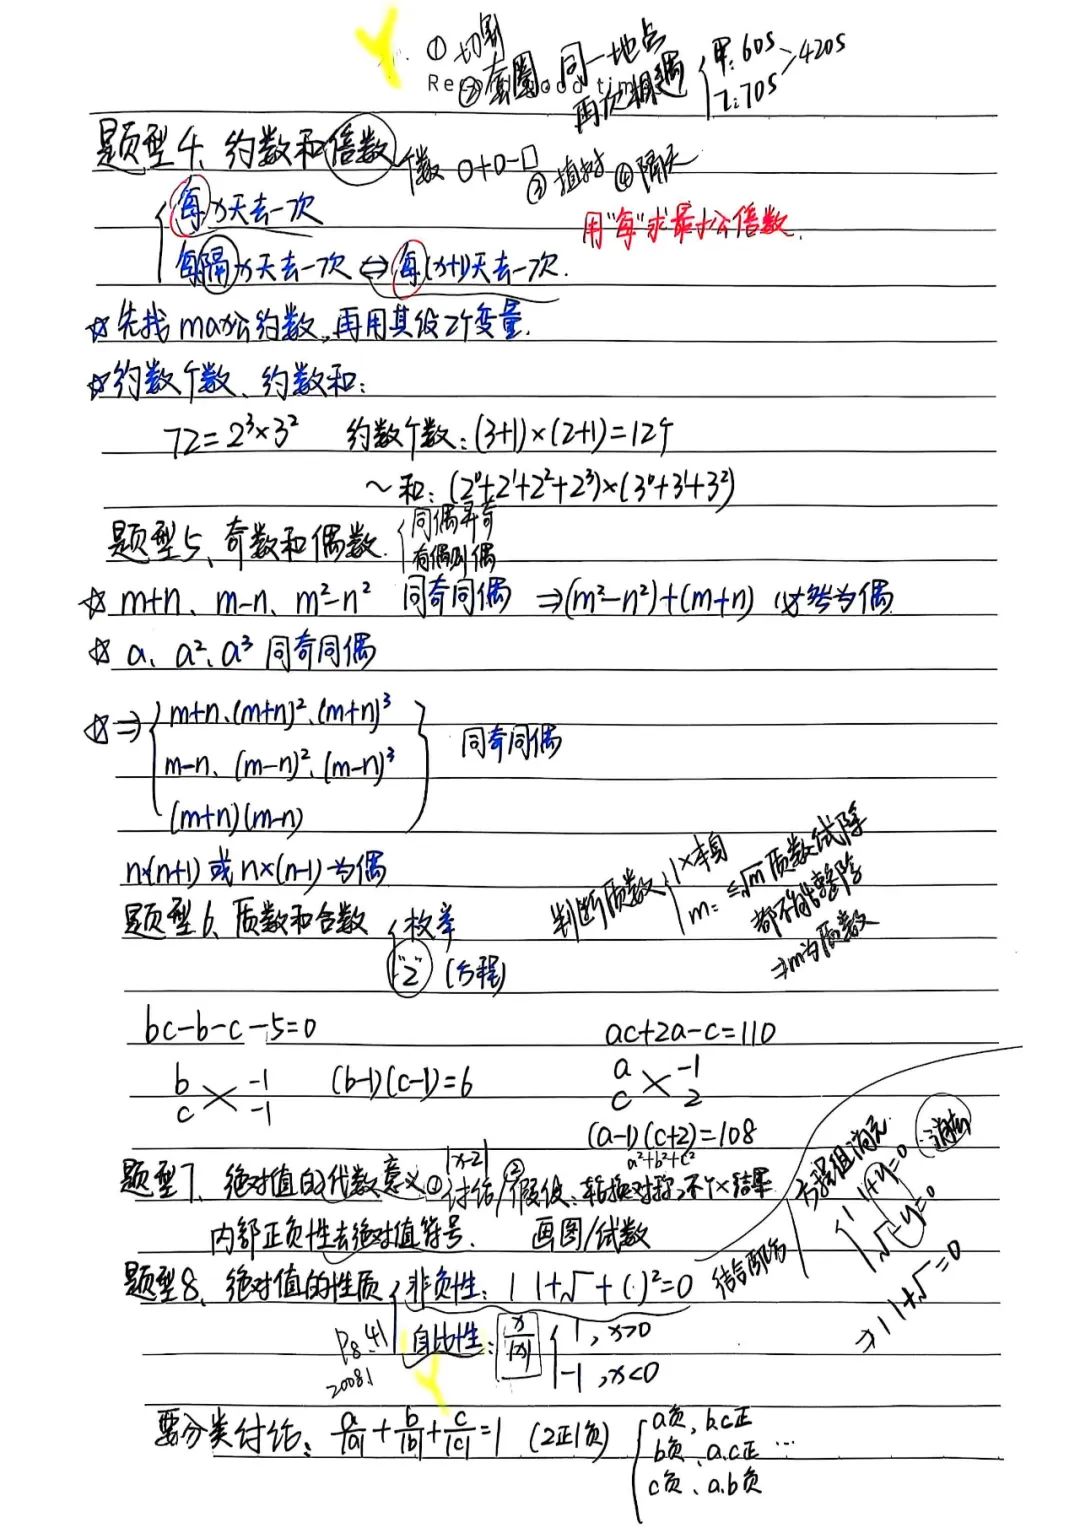 ① 切割
② 套圈 同一地点
再次相遇 { 甲:60s 乙:70s > 420s
题型4、约数和倍数 个数 □+□-□
③ 植树 ④ 隔天
每x天去一次
用"每"求最小公倍数.
每隔x天去一次 ⇔ 每(x+1)天去一次.
☆先找max公约数,再用其设2个变量.
☆约数个数、约数和:
72=2³×3² 约数个数:(3+1)×(2+1)=12个
~和:(2⁰+2¹+2²+2³)×(3⁰+3¹+3²)
题型5、奇数和偶数. { 同偶异奇
有偶则偶
☆ m+n、m-n、m²-n² 同奇同偶 ⇒(m²-n²)+(m+n) 必然为偶
☆ a、a²、a³ 同奇同偶
☆⇒ { m+n、(m+n)²、(m+n)³
m-n、(m-n)²、(m-n)³ } 同奇同偶
(m+n)(m-n)
n×(n+1) 或 n×(n-1) 为偶
判断质数 { 1×本身
m: ≤√m 质数试除
都不能整除
⇒m为质数
题型6、质数和合数 { 枚举
"2" (方程)
bc-b-c-5=0 ac+2a-c=110
b -1 (b-1)(c-1)=6 a -1
c -1 c 2
(a-1)(c+2)=108
|x-2| a²+b²+c²
题型7、绝对值的代数意义 ①讨论/②假设:轮换对称,不个×结果
内部正负性去绝对值符号. 画图/试数
题型8、绝对值的性质 { 非负性:| |+√ +( )²=0
结合部分
方程组消元 消去
{ | |+y=0
√ -y=0
⇒ | |+√ =0
自比性: x/|x| { 1, x>0
-1, x<0
P8.41
2008.1
要分类讨论: a/|a|+b/|b|+c/|c|=1 (2正1负) { a负、b.c正
b负、a.c正 …
c负、a.b负